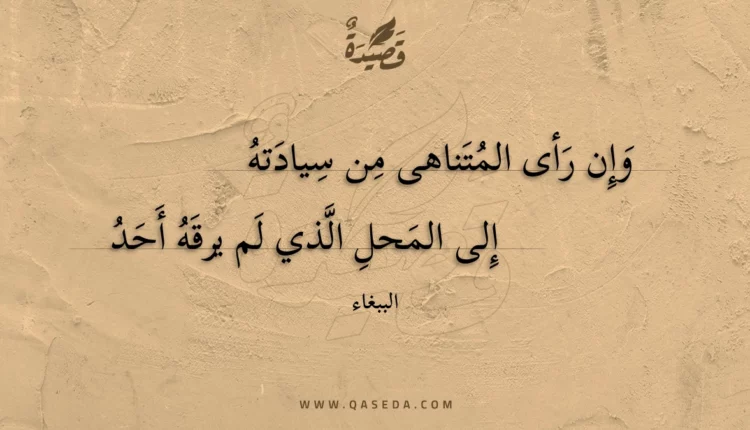 قَصِيْدَةٌ
وَإِن رَأى المُتَناهى مِن سِيادَتهُ
إِلى المَحلِ الَّذي لَم يرقَهُ أَحَدُ
الببغاء
WWW.QASEDA.COM